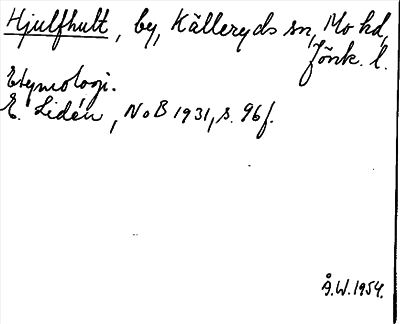 Hjulfhult, by, Källeryds sn, Mo hd,
Jönk. l.
Etymologi.
E. Lidén, NoB 1931, s. 96f.
Å.W. 1954.